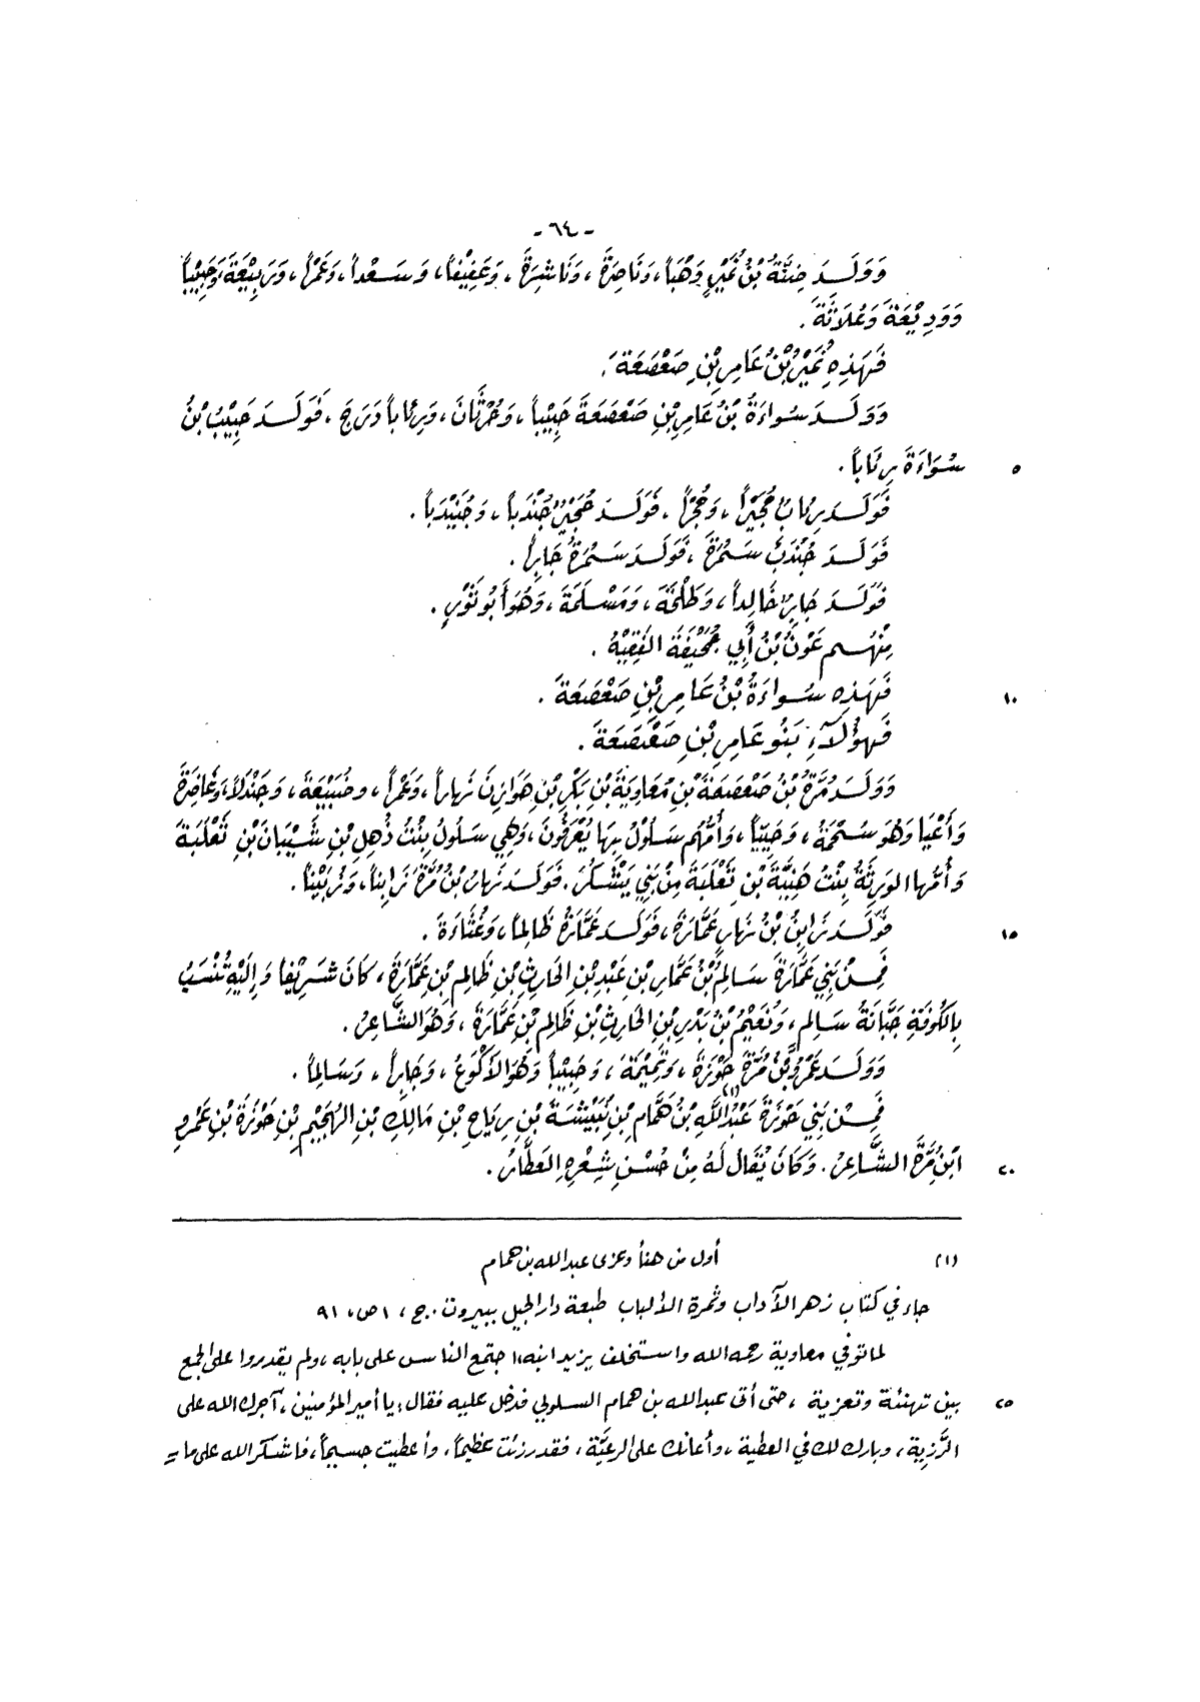 - ٦٤ -
وَوَلَدَ ضِنَّةُ بْنُ نُمَيْرٍ وَهْبَاً، وَنَاصِرَةَ، وَنَاشِرَةَ، وَعَفِيْفَاً، وَسَعْداً، وَعَمْراً، وَرَبِيْعَةَ، وَحَبِيْبَاً
وَوَدِيْعَةَ وَعُلَاثَةَ.
فَهَذِهِ نُمَيْرُ بْنُ عَامِرِ بْنِ صَعْصَعَةَ.
وَوَلَدَ سُوَاءَةُ بْنُ عَامِرِ بْنِ صَعْصَعَةَ حَبِيْبَاً، وَحُرْثَانَ، وَرِئَاباً دَرَجَ، فَوَلَدَ حَبِيْبُ بْنُ
٥ سُوَاءَةَ رِئَابَاً.
فَوَلَدَ رِئَابُ حُجَيْراً، وَحُجْراً، فَوَلَدَ حُجَيْرُ جُنْدَبَاً، وَجُنَيْدَبَاً.
فَوَلَدَ جُنْدَبُ سَمُرَةَ، فَوَلَدَ سَمُرَةُ جَابِراً.
فَوَلَدَ جَابِرُ خَالِداً، وَطَلْحَةَ، وَمَسْلَمَةَ، وَهُوَ أَبُو ثَوْرٍ.
مِنْهُم عَوْنُ بْنُ أَبِي جُحَيْفَةَ الفَقِيْهُ.
١٠ فَهَذِهِ سُوَاءَةُ بْنُ عَامِرِ بْنِ صَعْصَعَةَ.
فَهؤُلَاءِ بَنُو عَامِرِ بْنِ صَعْصَعَةَ.
وَوَلَدَ مُرَّةُ بْنُ صَعْصَعَةَ بْنِ مُعَاوِيَةَ بْنِ بَكْرِ بْنِ هَوَازِنَ نَهَاراً، وَعَمْراً، وضُبَيْعَةَ، وَجَنْدَلاً، وَغَاضِرَةَ
وَأَعْيَا وَهُوَ سُحْمَةُ، وَحَيِّيَاً، وَأُمُّهُم سَلُوْلُ بِهَا يُعْرَفُونَ، وَهِي سَلُولُ بِنْتُ ذُهِلِ بْنِ شَيْبَانَ بْنِ ثَعْلَبَةَ
وَأُمُّهَا الوَرِثَةُ بِنْتُ هَنِيَّةَ بْنِ ثَعْلَبَةَ مِنْ بَنِي يَشْكُرَ. فَوَلَدَ نَهَارُ بْنُ مُرَّةَ زَابِنَاً، وَزُبَيْنَاً.
١٥ فَوَلَدَ زَابِنُ بْنُ نَهَارٍ عَمَّارَةَ، فَوَلَدَ عَمَّارَةُ ظَالِماً، وَغُثَاءَةَ.
فَمِنْ بَنِي عَمَّارَةَ سَالِمُ بْنُ عَمَّارِ بْنِ عَبْدِ بْنِ الحَارِثِ بْنِ ظَالِمِ بْنِ عَمَّارَةَ، كَانَ شَرِيْفاً وَإِلَيْهِ تُنْسَبُ
بِالكُوفَةِ جَبَّانَةُ سَالِمٍ، وَنُعَيْمُ بْنُ بَدْرِ بْنِ الحَارِثِ بْنِ ظَالِمِ بْنِ عَمَّارَةَ، وَهُوَ الشَّاعِرُ.
وَوَلَدَ عَمْرُو بْنُ مُرَّةَ حَوْزَةَ، وَتَمِيْمَةَ، وَحَبِيْبَاً وَهُوَ الأَكْوَعُ، وَجَابِراً، وَسَالِماً.
فَمِنْ بَنِي حَوْزَةَ عَبْدُ اللَّهِ(١) بْنُ هَمَّامِ بْنِ نُبَيْشَةَ بْنِ رِيَاحِ بْنِ مَالِكِ بْنِ الهُجَيْمِ بْنِ حَوْزَةَ بْنِ عَمْرِو
٢٠ ابْنِ مُرَّةَ الشَّاعِرُ. وَكَانَ يُقَالُ لَهُ مِنْ حُسْنِ شِعْرِهِ العَطَّارُ.
(١) أول من هنأ وعزى عبدالله بن همام
جاء في كتاب زهر الآداب وثمرة الألباب طبعة دار الجيل ببيروت. ج، ١ ص، ٩١
لما توفي معاوية رحمه الله واستخلف يزيد ابنه، اجتمع الناس على بابه، ولم يقدروا على الجمع
٢٥ بين تهنئة وتعزية، حتى أتى عبدالله بن همام السلولي فدخل عليه فقال: يا أمير المؤمنين، آجرك الله على
الرَّزية، وبارك لك في العطية، وأعانك على الرعيَّة، فقد رزئت عظيماً، وأعطيت جسيماً، فاشكر الله على ما =